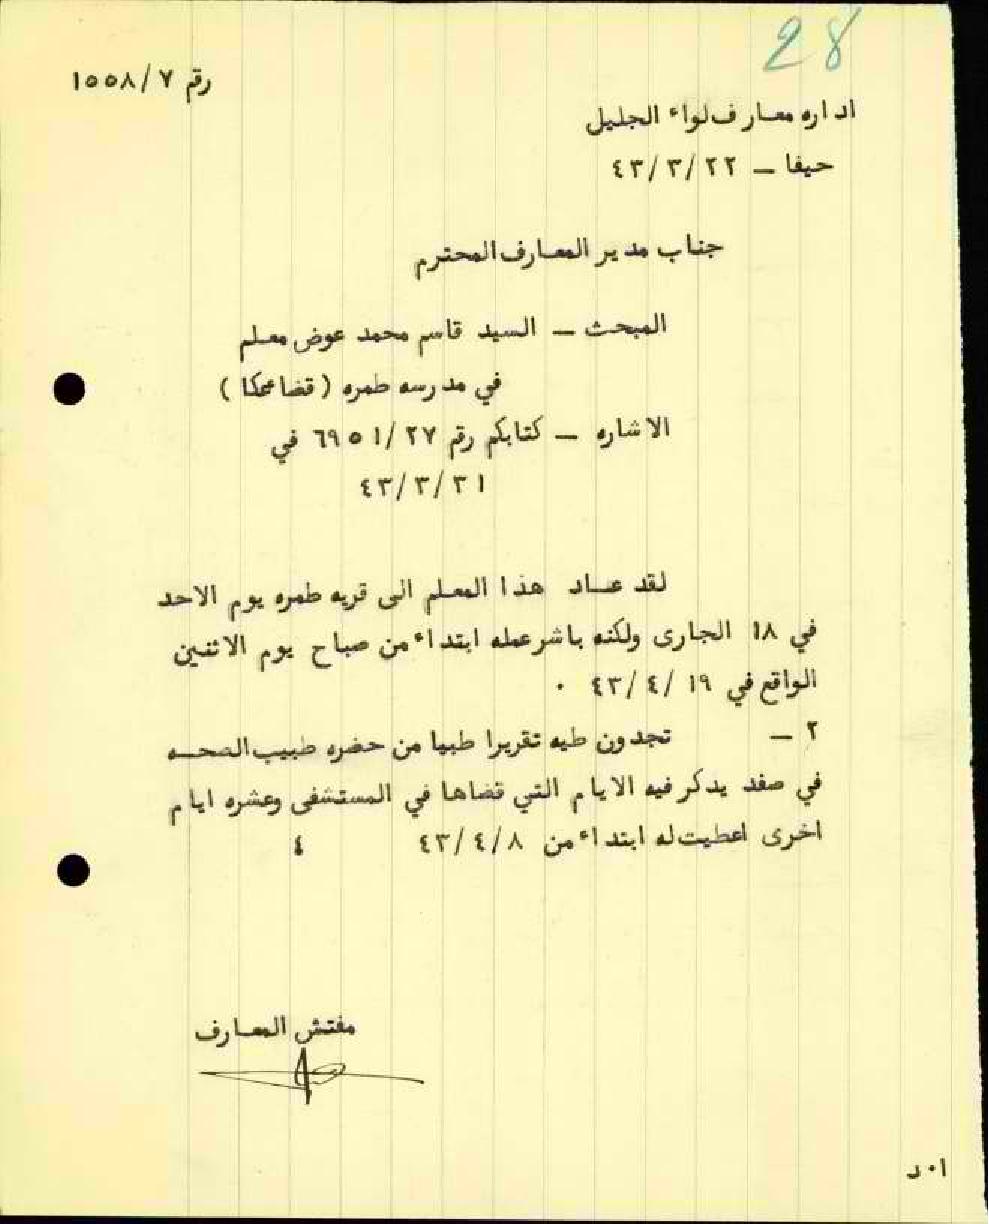 28
رقم ٧/١٥٥٨
اداره معارف لواء الجليل
حيفا — ٤٣/٣/٢٢
جناب مدير المعارف المحترم
المبحث — السيد قاسم محمد عوض معلم
في مدرسه طمره (قضاء عكا)
الاشاره — كتابكم رقم ٦٩٥١/٢٧ في
٤٣/٣/٣١
لقد عاد هذا المعلم الى قريه طمره يوم الاحد
في ١٨ الجارى ولكنه باشر عمله ابتداء من صباح يوم الاثنين
الواقع في ٤٣/٤/١٩ ٠
٢ — تجدون طيه تقريرا طبيا من حضره طبيب الصحه
في صفد يذكر فيه الايام التي قضاها في المستشفى وعشره ايام
اخرى اعطيت له ابتداء من ٤٣/٤/٨ ٤
مفتش المعارف
ا٠د